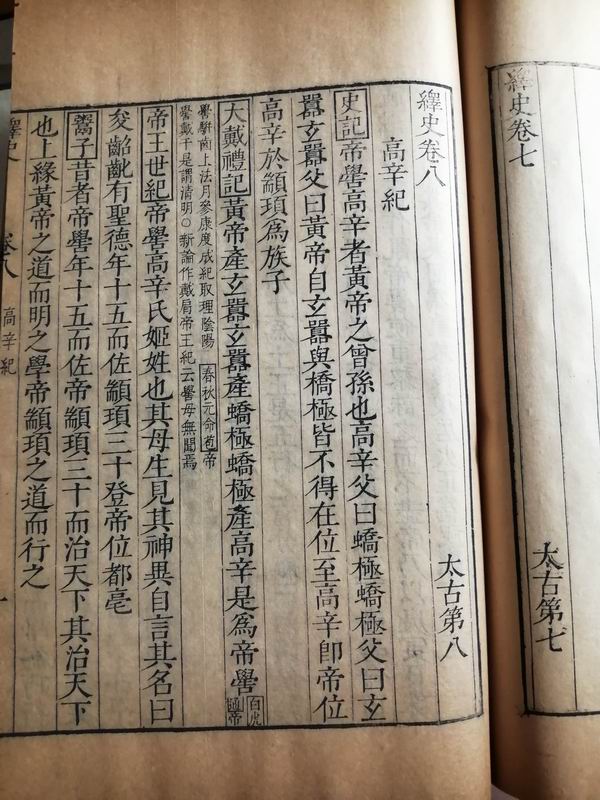 繹史卷七
太古第七
繹史卷八　太古第八
高辛紀
史記帝嚳高辛者黃帝之曾孫也高辛父曰蟜極蟜極父曰玄
囂玄囂父曰黃帝自玄囂與橋極皆不得在位至高辛卽帝位
高辛於顓頊爲族子
大戴禮記黃帝產玄囂玄囂產蟜極蟜極產高辛是爲帝嚳
白虎
通帝
嚳騈齒上法月參康度成紀取理陰陽 春秋元命苞帝
嚳戴干是謂清明○新論作戴肩帝王紀云嚳母無聞焉
帝王世紀帝嚳高辛氏姬姓也其母生見其神異自言其名曰
夋齠齔有聖德年十五而佐顓頊三十登帝位都亳
鬻子昔者帝嚳年十五而佐帝顓頊三十而治天下其治天下
也上緣黃帝之道而明之學帝顓頊之道而行之
繹史 卷八 高辛紀 一